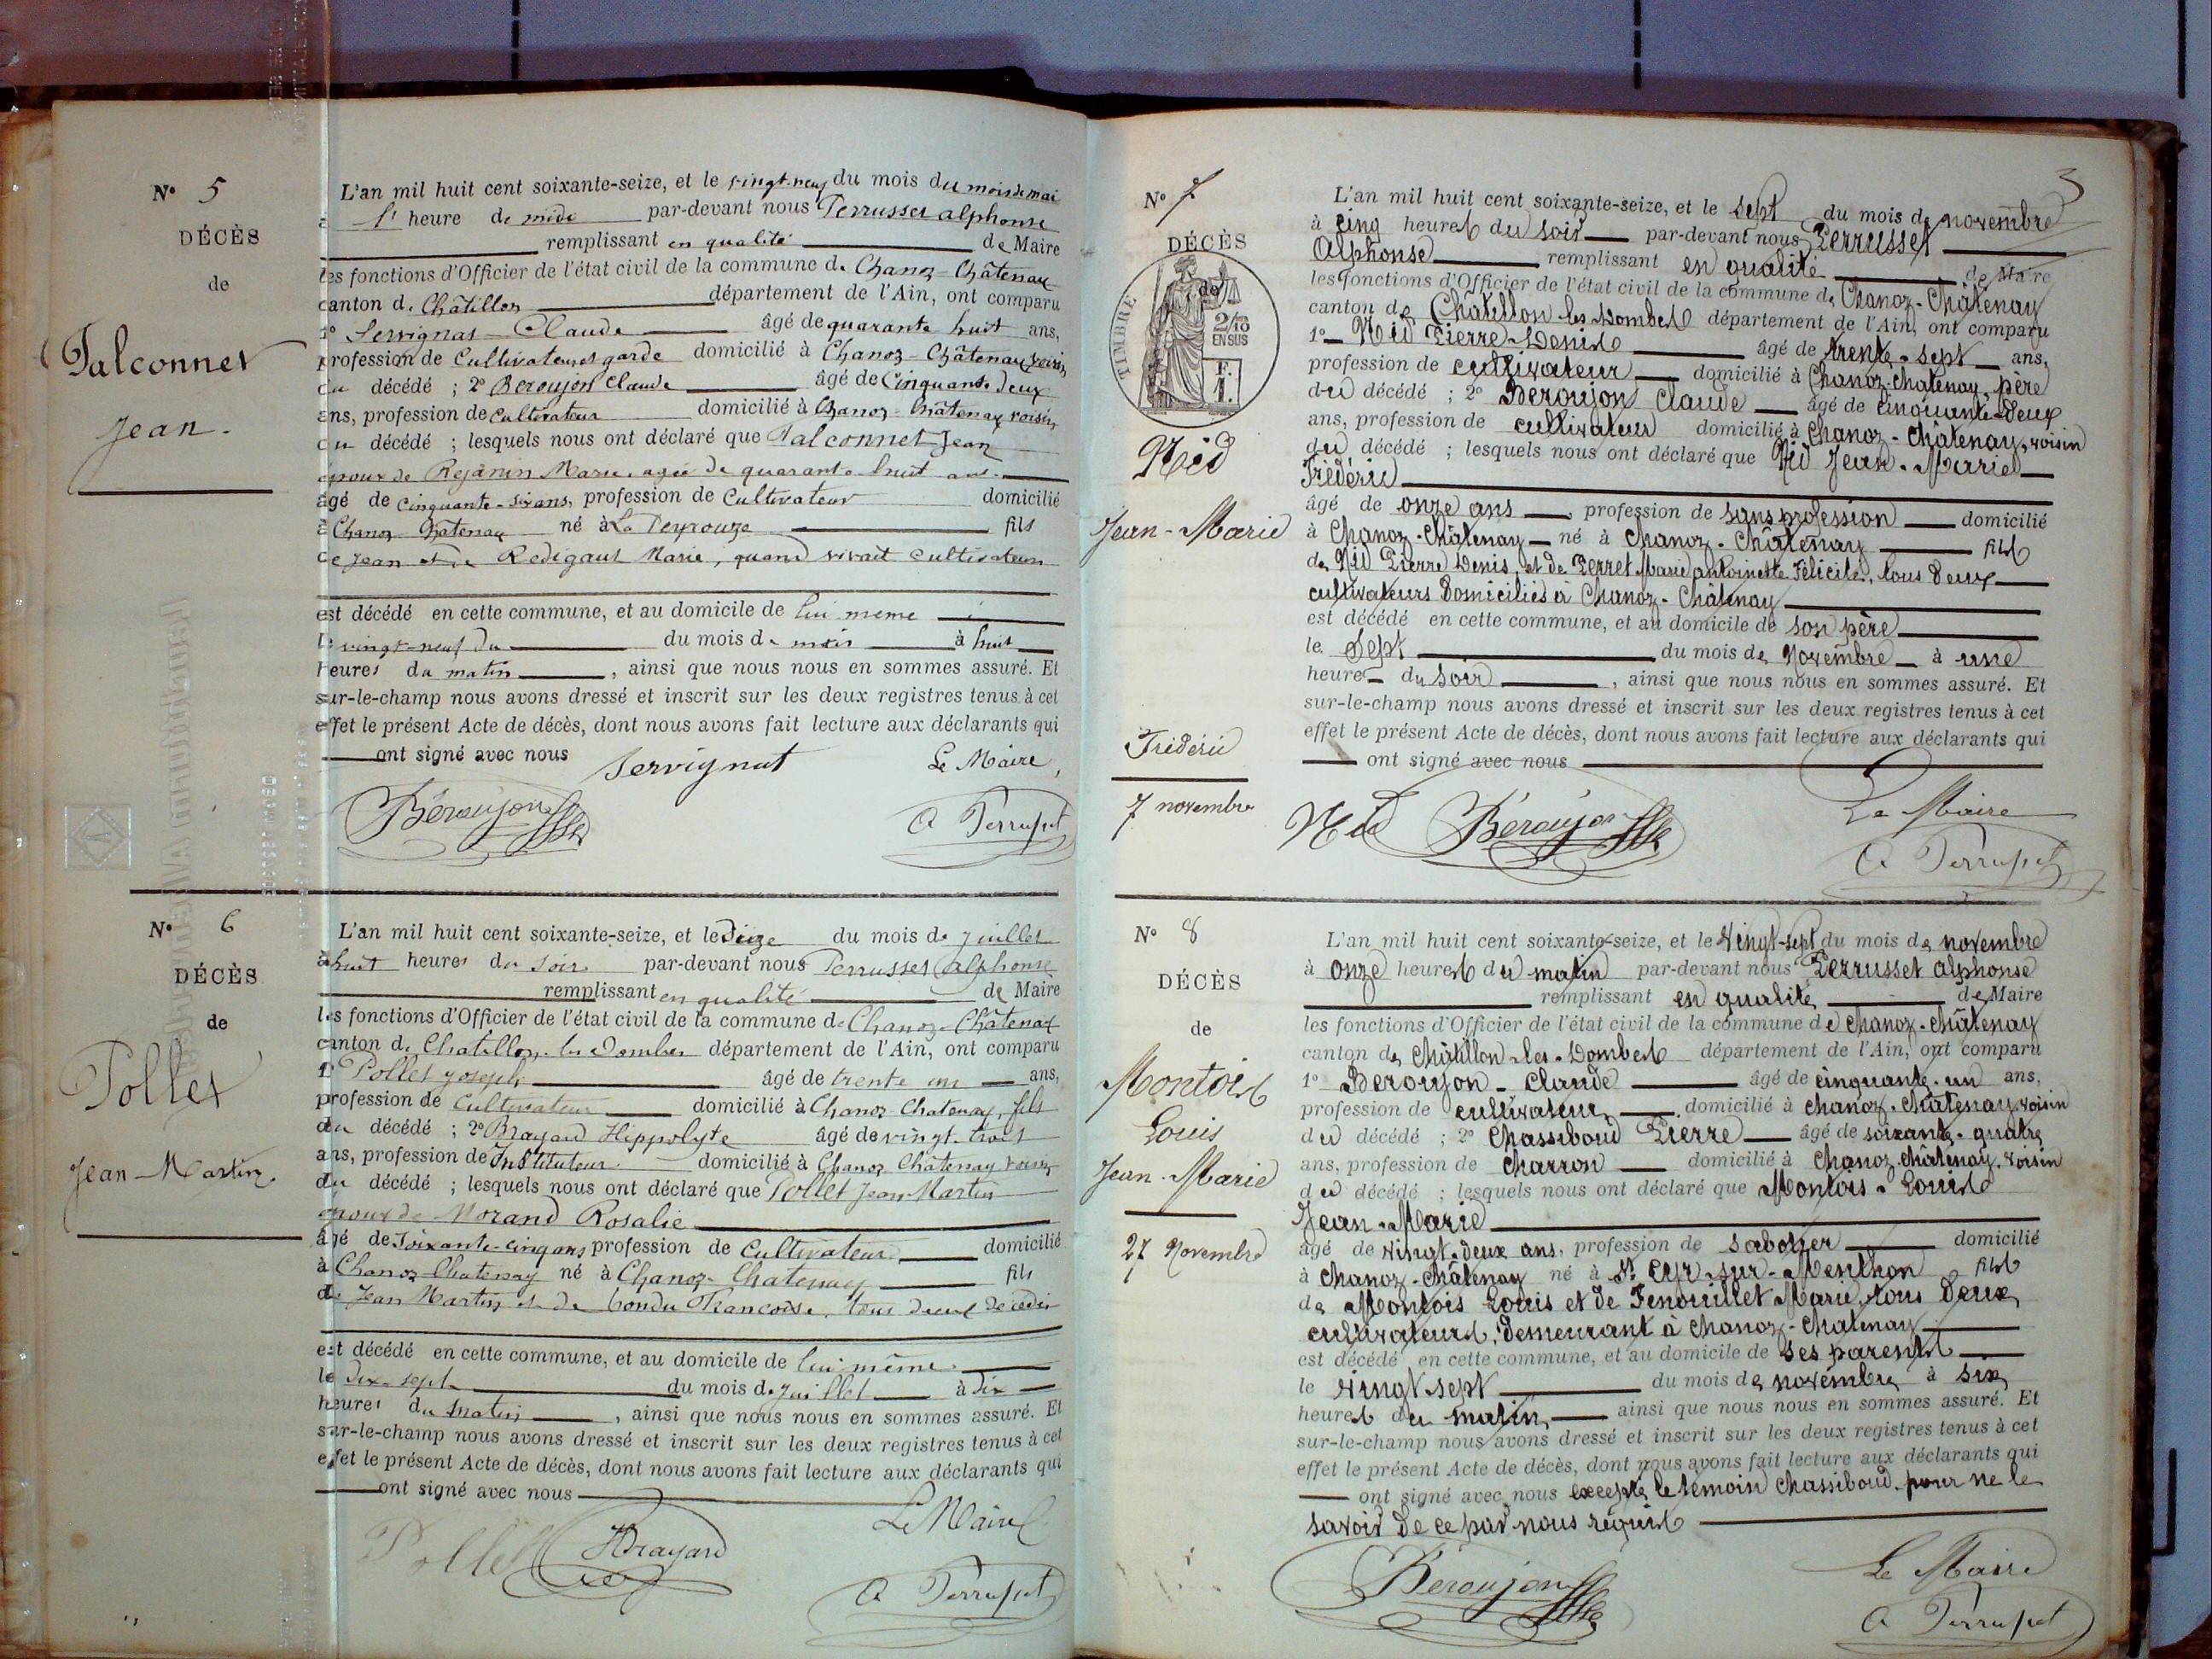 N° 5
DÉCÈS
de
Falconnet
Jean.
L'an mil huit cent soixante-seize, et le vingt-neuf du mois du mois de mai
à 1' heure de midi par-devant nous Perrusset alphonse
remplissant en qualité de Maire
les fonctions d'Officier de l'état civil de la commune de Chanoz-Châtenay
canton de Châtillon département de l'Ain, ont comparu
1° Servignat Claude âgé de quarante huit ans,
profession de Cultivateur et garde domicilié à Chanoz-Châtenay voisin
du décédé ; 2° Beroujon Claude âgé de Cinquante deux
ans, profession de Cultivateur domicilié à Chanoz-Châtenay voisin
du décédé ; lesquels nous ont déclaré que Falconnet Jean
époux de Marie, agée de quarante huit ans
âgé de cinquante-six ans, profession de Cultivateur domicilié
à Chanoz Châtenay né à La Peyrouze fils
de Jean et de Marie, quand vivait cultivateurs
est décédé en cette commune, et au domicile de lui meme
le vingt-neuf du du mois de à huit
heures du matin, ainsi que nous nous en sommes assuré. Et
sur-le-champ nous avons dressé et inscrit sur les deux registres tenus à cet
effet le présent Acte de décès, dont nous avons fait lecture aux déclarants qui
ont signé avec nous
Servignat Le Maire,
Béroujon A Perrusset
N° 6
DÉCÈS
de
Pollet
Jean-Martin
L'an mil huit cent soixante-seize, et le du mois de juillet
à huit heures du soir par-devant nous Perrusset alphonse
remplissant en qualité de Maire
les fonctions d'Officier de l'état civil de la commune de Chanoz-Châtenay
canton de Chatillon-les Dombes département de l'Ain, ont comparu
1° Pollet joseph âgé de trente un ans,
profession de Cultivateur domicilié à Chanoz-Chatenay, fils
du décédé ; 2° Brayard Hippolyte âgé de vingt-trois
ans, profession de Instituteur domicilié à Chanoz Châtenay voisin
du décédé ; lesquels nous ont déclaré que Pollet Jean-Martin
epoux de Morand Rosalie
âgé de Soixante-cinq ans profession de Cultivateur, domicilié
à Chanoz-Chatenay né à Chanoz-Chatenay fils
de Jean Martin et de Bondu Francoise, tous deux décédés
est décédé en cette commune, et au domicile de lui même
le dix-sept du mois de juillet à dix
heures du matin, ainsi que nous nous en sommes assuré. Et
sur-le-champ nous avons dressé et inscrit sur les deux registres tenus à cet
effet le présent Acte de décès, dont nous avons fait lecture aux déclarants qui
ont signé avec nous
Pollet HBrayard Le Maire
A Perrusset
3
N° 7
DÉCÈS
de
TIMBRE
2/10
EN SUS
F.
1.
Nid
Jean-Marie
Frédéric
7 novembre
L'an mil huit cent soixante-seize, et le sept du mois de novembre
à cinq heures du soir par-devant nous Perrusset
Alphonse remplissant en qualité de Maire
les fonctions d'Officier de l'état civil de la commune de Chanoz-Châtenay
canton de Châtillon les Dombes département de l'Ain, ont comparu
1° Nid Pierre-Denis âgé de trente-sept ans,
profession de cultivateur domicilié à Chanoz-chatenay, père
du décédé ; 2° Beroujon Claude âgé de cinquante-deux
ans, profession de cultivateur domicilié à Chanoz-Châtenay, voisin
du décédé ; lesquels nous ont déclaré que Nid Jean-Marie
Frédéric
âgé de onze ans, profession de sans profession domicilié
à Chanoz-Châtenay né à Chanoz-Châtenay fils
de Nid Pierre Denis, et de Perret Marie antoinette Félicité, tous deux
cultivateurs domiciliés à Chanoz-Châtenay
est décédé en cette commune, et au domicile de son père
le Sept du mois de Novembre à une
heure du soir, ainsi que nous nous en sommes assuré. Et
sur-le-champ nous avons dressé et inscrit sur les deux registres tenus à cet
effet le présent Acte de décès, dont nous avons fait lecture aux déclarants qui
ont signé avec nous
Nid Béroujon Le Maire
A Perrusset
N° 8
DÉCÈS
de
Montois
Louis
Jean-Marie
27 Novembre
L'an mil huit cent soixante-seize, et le Vingt-sept du mois de novembre
à onze heures du matin par-devant nous Perrusset alphonse
remplissant en qualité de Maire
les fonctions d'Officier de l'état civil de la commune de Chanoz-Châtenay
canton de Châtillon-les-Dombes département de l'Ain, ont comparu
1° Beroujon-Claude âgé de cinquante-un ans,
profession de cultivateur, domicilié à Chanoz-Châtenay voisin
du décédé ; 2° Chassiboud Pierre âgé de soixante-quatre
ans, profession de Charron domicilié à Chanoz-Châtenay, voisin
du décédé ; lesquels nous ont déclaré que Montois-Louis
Jean-Marie
âgé de vingt-deux ans, profession de sabotier domicilié
à Chanoz-Châtenay né à St Cyr-sur-Menthon fils
de Montois Louis et de Fenouillet Marie, tous deux
cultivateurs, demeurant à Chanoz-Chatenay
est décédé en cette commune, et au domicile de ses parents
le vingt sept du mois de novembre à six
heures du matin, ainsi que nous nous en sommes assuré. Et
sur-le-champ nous avons dressé et inscrit sur les deux registres tenus à cet
effet le présent Acte de décès, dont nous avons fait lecture aux déclarants qui
ont signé avec nous excepté le témoin Chassiboud, pour ne le
savoir de ce par nous requis
Béroujon Le Maire
A Perrusset